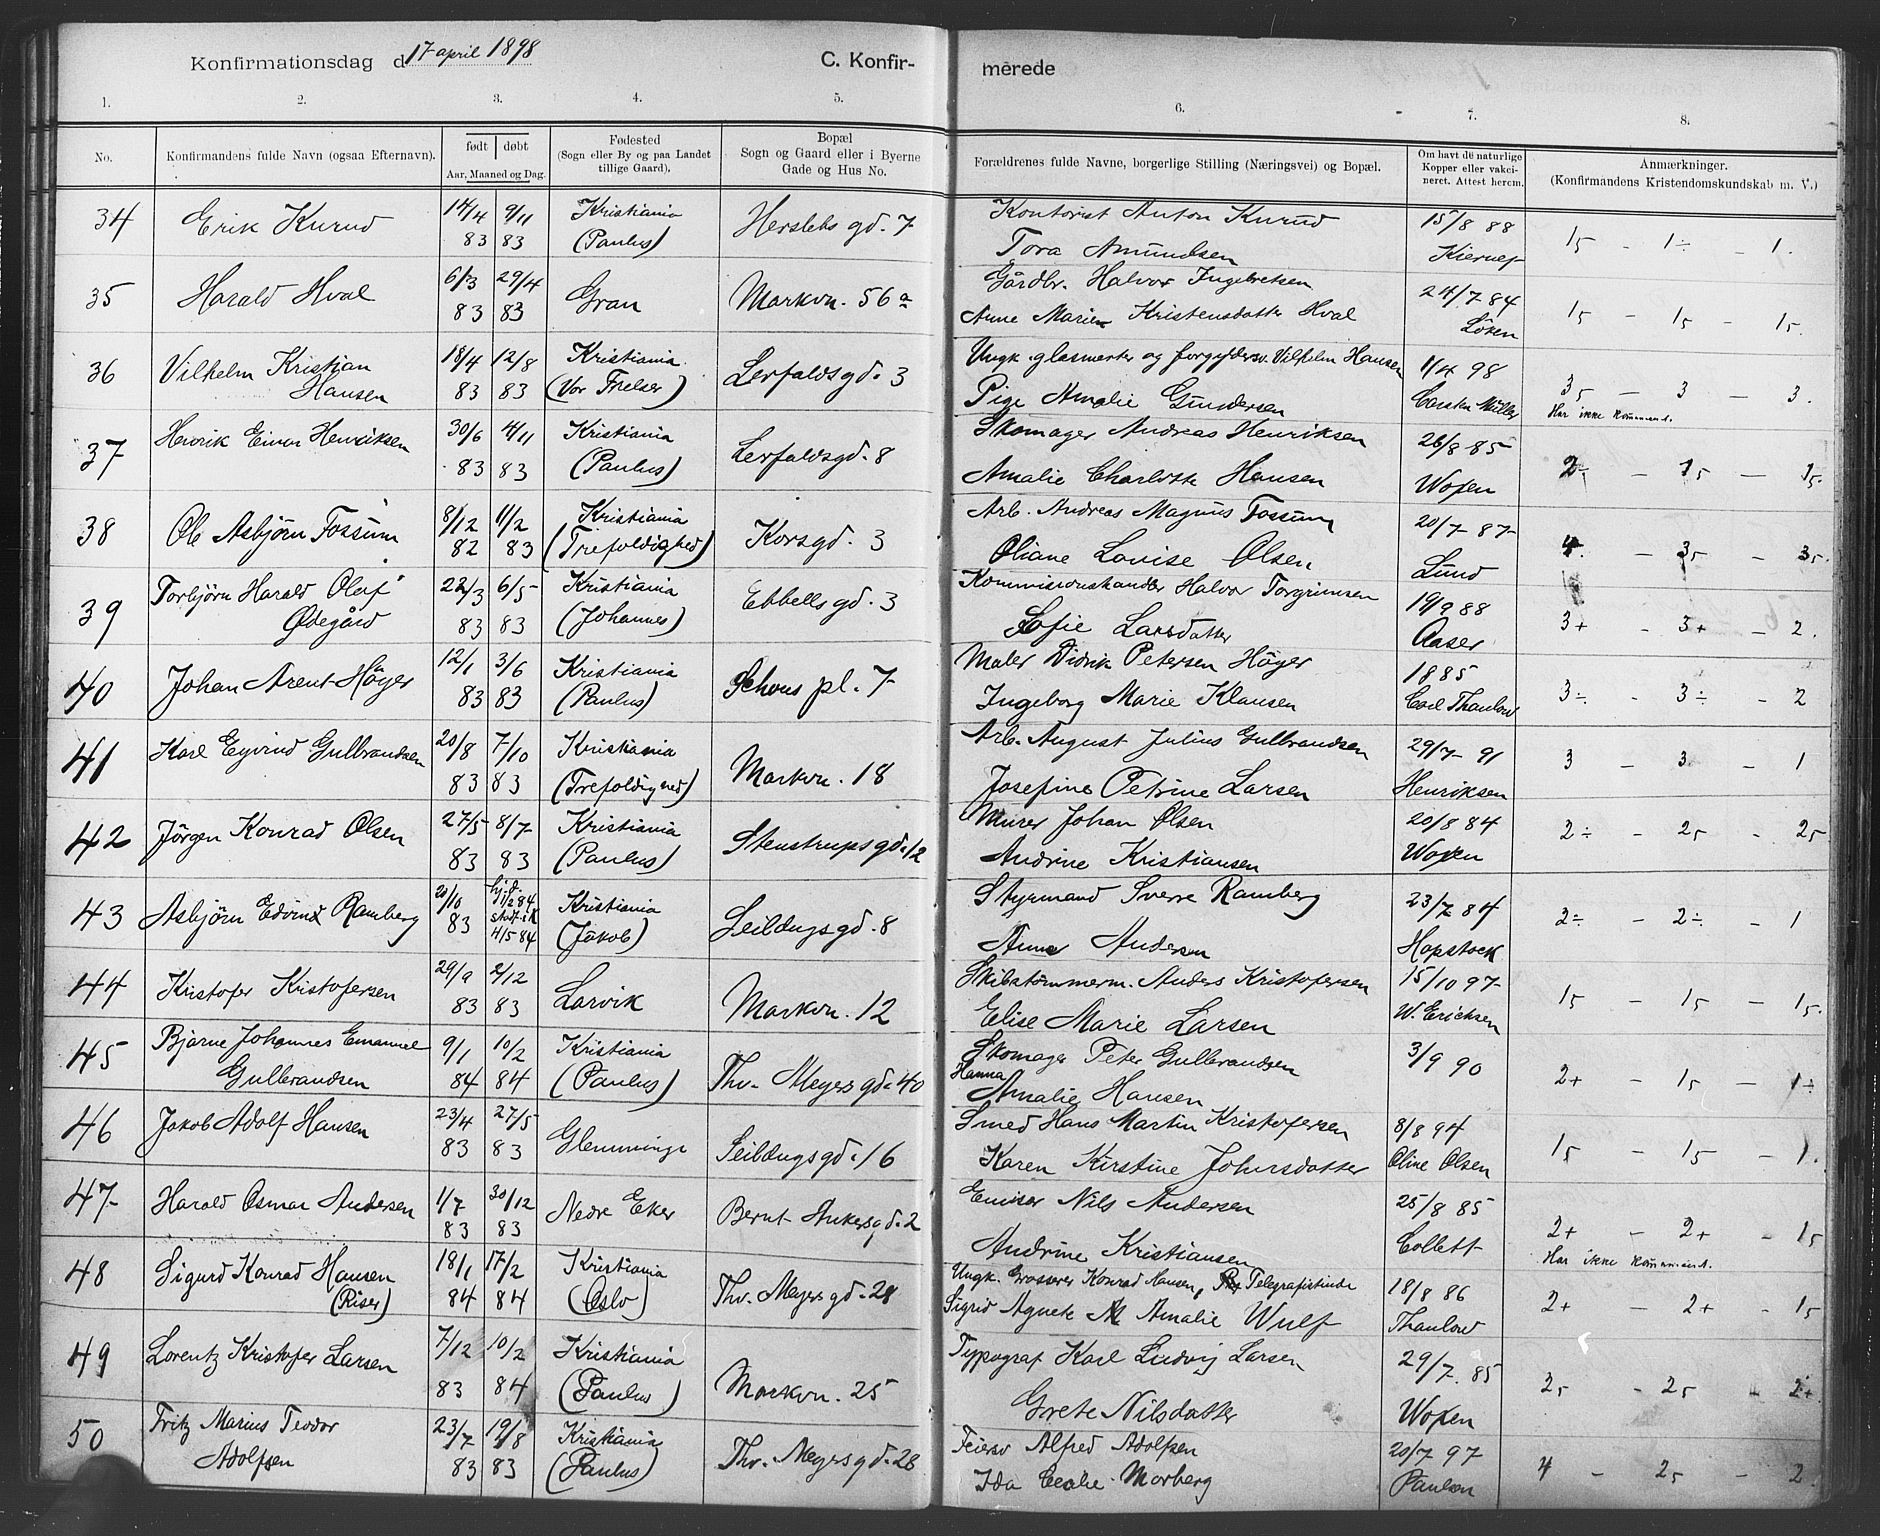 Konfirmationsdag d. 17 april 1898 C. Konfir- merede
1. 2. 3. 4. 5. 6. 7. 8.
No.
Konfirmandens fulde Navn (ogsaa Efternavn).
født døbt
Aar, Maaned og Dag.
Fødested
(Sogn eller By og paa Landet
tillige Gaard).
Bopæl
Sogn og Gaard eller i Byerne
Gade og Hus No.
Forældrenes fulde Navne, borgerlige Stilling (Næringsvei) og Bopæl.
Om havt de naturlige
Kopper eller vakci-
neret. Attest herom.
Anmærkninger.
(Konfirmandens Kristendomskundskab m. V.)
34 Erik Kurud 14/4 9/11 Kristiania Herslebs gd. 7 Kontorist Anton Kurud 15/8 88
83 83 (Paulus) Tora Amundsen Kierulf 15 - 1÷ - 1.
35 Harald Hval 6/3 29/4 Gran Markvn. 56 a Gårdbr. Halvor Ingebretsen 24/7 84
83 83 Anne Marie Kristensdatter Hval Löken 15 - 15 - 15.
36 Vilhelm Kristian 18/4 12/8 Kristiania Lerfaldsgd. 3 Ungk. glasmester og forgyldersv. Vilhelm Hansen 1/4 98
Hansen 83 83 (Vor Frelser) Pige Amalie Gundersen Carsten Müller 35 - 3 - 3.
Har ikke kommunt.
37 Henrik Einar Henriksen 30/6 4/11 Kristiania Lerfaldsgd. 8 Skomager Andreas Henriksen 26/8 85
83 83 (Paulus) Amalie Charlotte Hansen Woxen 2÷ - 15 - 15.
38 Ole Asbjørn Fossum 8/12 11/2 Kristiania Korsgd. 3 Arb. Andreas Magnus Fossum 20/7 87
82 83 (Trefoldighed) Oliane Lovise Olsen Lund 4. - 35 - 35.
39 Torbjörn Harald Olaf 22/3 6/5 Kristiania Ebbells gd. 3 Kommissionshandler Halvor Torgrimsen 19/9 88
Ødegård 83 83 (Johannes) Sofie Larsdatter Aaser 3+ - 3+ - 2.
40 Johan Arent Höyer 12/1 3/6 Kristiania Schous pl. 7 Maler Didrik Petersen Höyer 1885
83 83 (Paulus) Ingeborg Marie Klausen Carl Thaulow 3÷ - 3÷ - 2
41 Karl Eyvind Gulbrandsen 20/8 7/10 Kristiania Markvn. 18 Arb. August Julius Gulbrandsen 29/7 91
83 83 (Trefoldighed) Josefine Petrine Larsen Henriksen 3 - 3 - 1
42 Jörgen Konrad Olsen 27/5 8/7 Kristiania Stenstrupsgd. 12 Murer Johan Olsen 20/8 84
83 83 (Paulus) Andrine Kristiansen Woxen 2÷ - 25 - 25
43 Asbjörn Edvind Ramberg 20/10 hj.d. Kristiania Seildugsgd. 8 Styrmand Sverre Ramberg 23/7 84
83 1/2 84 stadf. i K 4/5 84 (Jakob) Anna Andersen Hopstock 2÷ - 2÷ - 1
44 Kristofer Kristofersen 29/9 2/12 Larvik Markvn. 12 Skibstömmerm. Anders Kristofersen 15/10 97
83 83 Elise Marie Larsen W. Ericksen 15 - 15 - 15.
45 Bjarne Johannes Emanuel 9/1 10/2 Kristiania Thv. Meyers gd. 40 Skomager Peter Gulbrandsen 3/9 90
Gulbrandsen 84 84 (Paulus) Hanna Amalie Hansen 2+ - 15 - 1÷
46 Jakob Adolf Hansen 23/4 27/5 Glemminge Seildugsgd. 16 Smed Hans Martin Kristofersen 8/8 94
83 83 Karen Kirstine Johnsdatter Oline Olsen 15 - 15 - 1.
47 Harald Osmar Andersen 1/7 30/12 Nedre Eker Bernt Ankersgd. 2 Emiser Nils Andersen 25/8 85
83 83 Andrine Kristiansen Collett 2+ - 2+ - 15
Har ikke kommunt.
48 Sigurd Konrad Hansen 18/1 17/2 Kristiania Thv. Meyers gd. 28 Ungk. Grosserer Konrad Hansen, Telegrafistinde 18/8 86
(Riser) 84 84 (Oslo) Sigrid Agnete M Amalie Wulf Thaulow 2+ - 2+ - 15
49 Lorentz Kristofer Larsen 7/12 10/2 Kristiania Markvn. 25 Typograf Karl Ludvig Larsen 29/7 85
83 84 (Paulus) Grete Nilsdatter Woxen 25 - 25 - 2+
50 Fritz Marius Teodor 23/7 19/8 Kristiania Thv. Meyers gd. 28 Feiersv Alfred Adolfsen 20/7 97
Adolfsen 83 83 (Paulus) Ida Cecilie Morberg Paulsen 4 - 25 - 2